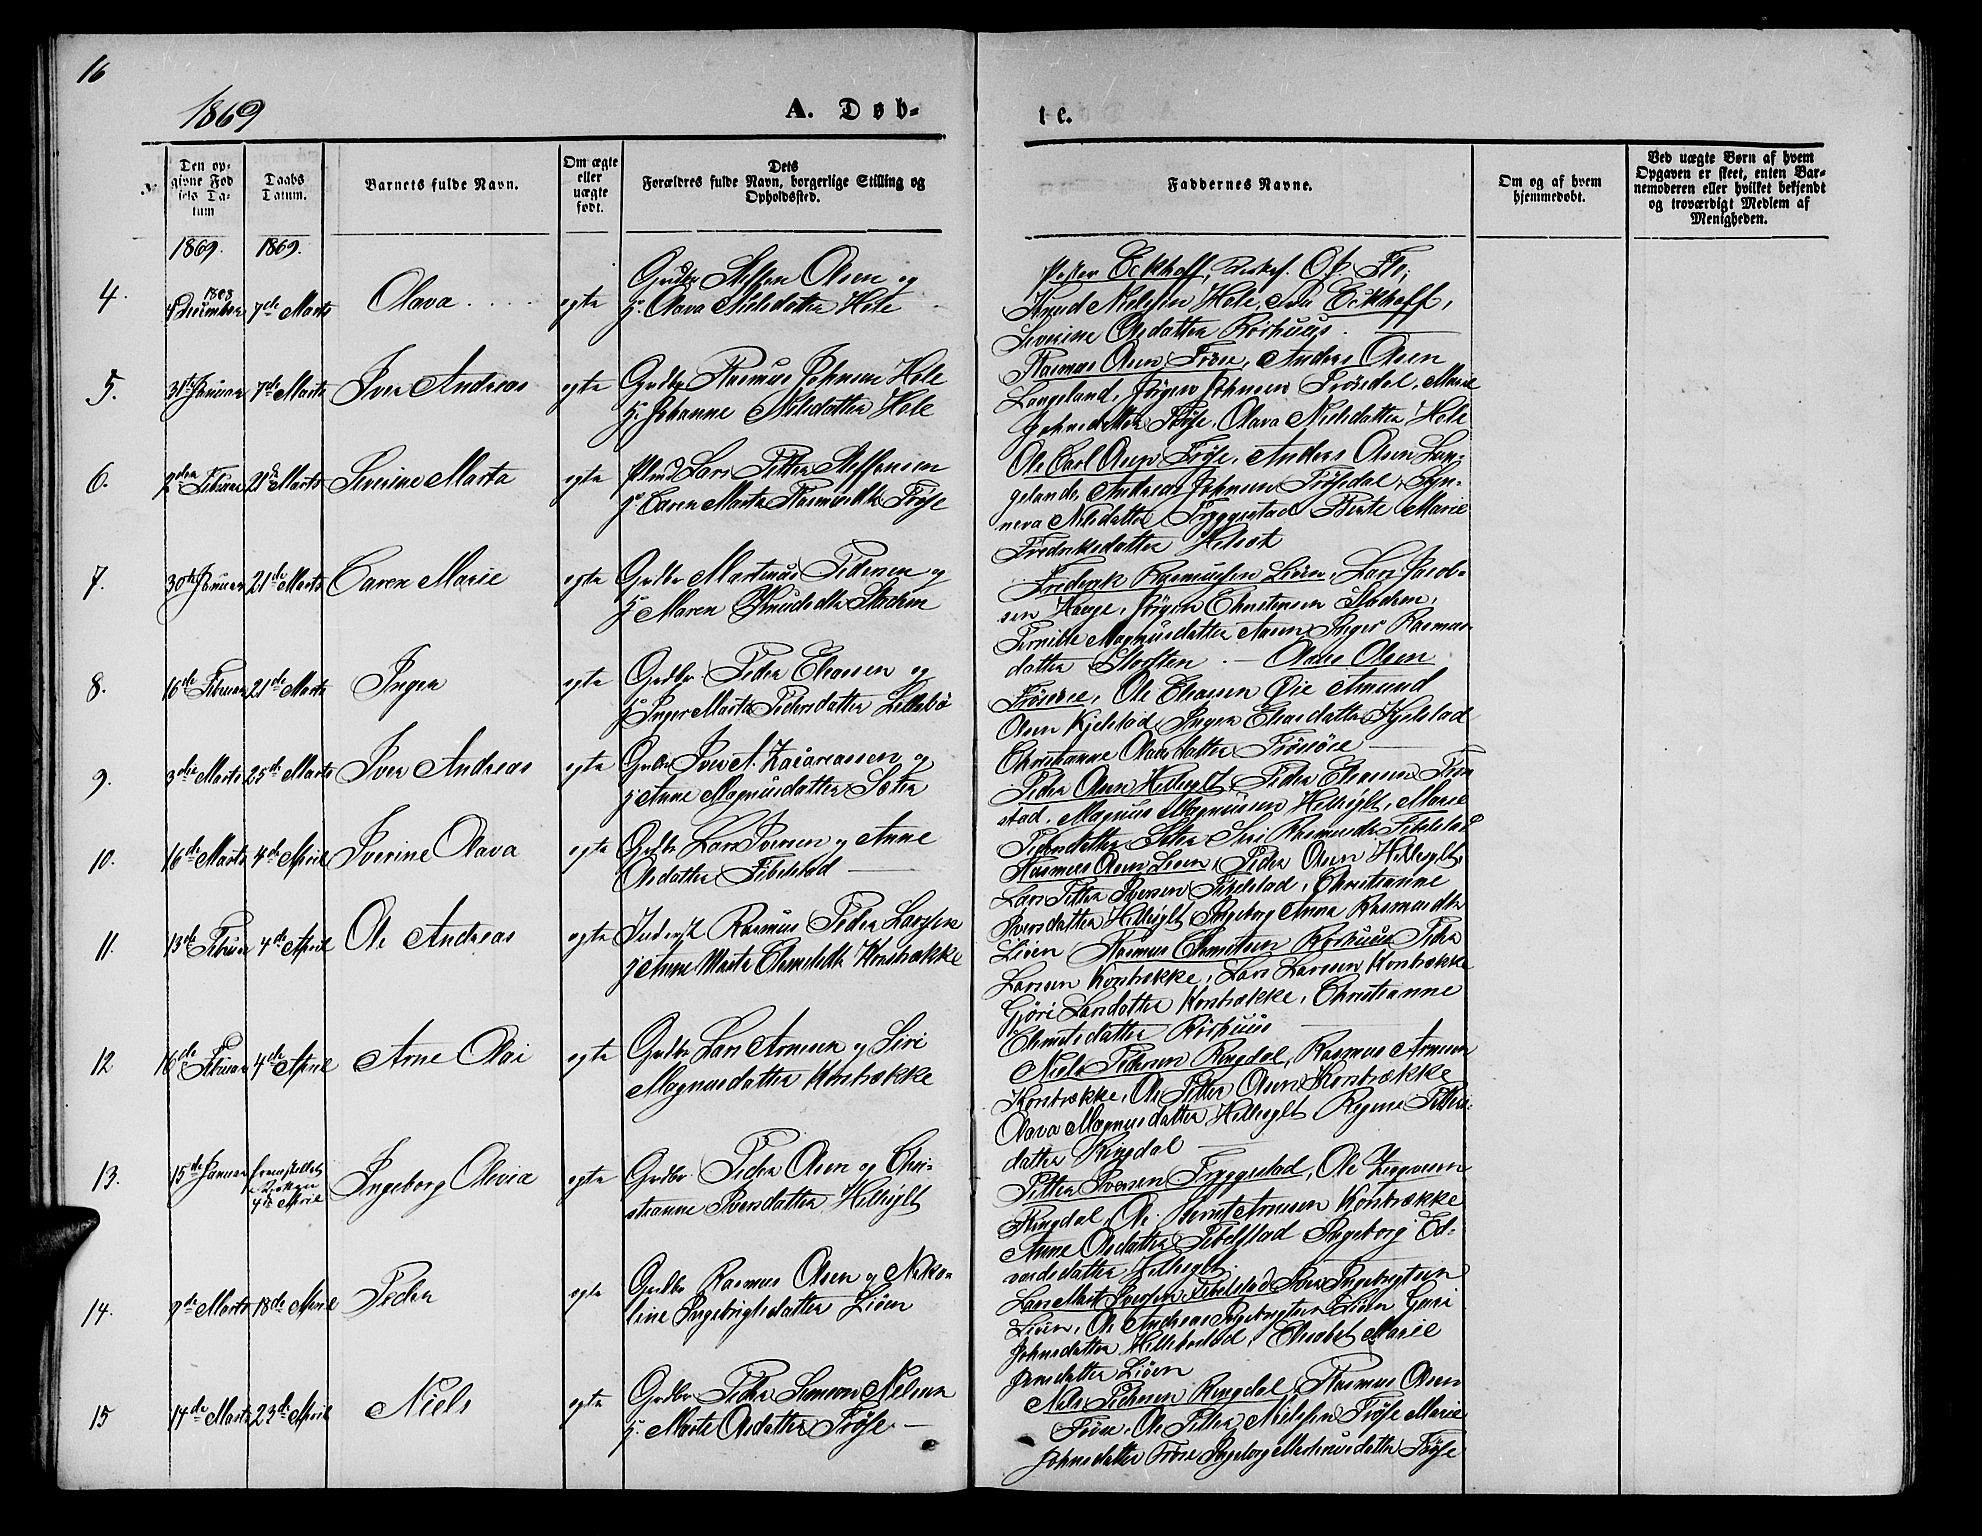 16
1869
A. Døb-
te.
No
Den opgivne Fødsels Datum
Daabs Datum.
Barnets fulde Navn.
Om ægte eller uægte født.
Dets Forældres fulde Navn, borgerlige Stilling og Opholdssted.
Faddernes Navne.
Om og af hvem hjemmedøbt.
Ved uægte Børn af hvem Opgaven er skeet, enten Barnemoderen eller hvilket bekjendt og troværdigt Medlem af Menigheden.
1869. 1869.
4. 1868 December 7de Marts Olava ægte Gudbr Steffen Olsen og
H. Olava Nielsdatter Hole
Pastor Eckhoff,
Knud Nielsen Hole, Eckhoff,
Severine Olsdatter Rørhuus.
5. 31te Januar 7de Marts Iver Andreas ægte Grdbr Rasmus Johnsen Hole
H. Johanne Nielsdatter Hole
Rasmus Olsen Frøse, Anders Olsen
Langeland, Jørgen Johnsen Frøsdal, Marie
Johnsdatter Frøse, Olava Nielsdatter Hole
6. 2den Februar 21de Marts Severine Marta ægte Lars Petter Steffensen
H. Caren Marta Rasmusdtr Frøse
Ole Carl Olsen Frøse, Anders Olsen Lan-
geland, Andreas Johnsen Frøsdal, Syn-
neva Nilsdatter Tryggestad Berte Marie
Fredriksdatter Helset
7. 30te Januar 21de Marts Caren Marie ægte Grdbr Martinus Pedersen og
H. Maren Knudsdtr Stadem
Frederik Rasmussen Liøen, Lars Jacob-
sen Hauge, Jørgen Christensen Stadem,
Pernille Magnusdatter Aasen Inger Rasmus-
datter Storsten. — Claus Olsen
8. 16de Februar 21de Marts Inger ægte Grdbr Peder Eliassen og
H. Inger Marta Pedersdatter Lillebø
Frøsøe, Ole Eliassen Øie Amund
Olsen Kjelstad, Inger Eliasdatter Kjelstad
Christianne Olausdatter Frøsøe
9. 3die Marts 25de Marts Iver Andreas ægte Grdbr Iver A. Zacariassen og
H. Anne Magnusdatter Sæter
Peder Olsen Hellesylt, Peder Eliassen
stad, Magnus Magnussen Hellesylt, Marie
Pedersdatter Sæter Siri Rasmusdtr Fibelstad
10. 16de Marts 4de April Iverine Olava ægte Grdbr Lars Iversen og Anne
Olsdatter Fibelstad
Rasmus Olsen Lien, Peder Olsen Hellesylt,
Lars Petter Iversen Fibelstad, Christianne
Iversdatter Hellesylt Ingeborg Anna Rasmusdtr
Liøen
11. 13de Februar 4de April Ole Andreas ægte Inderst Rasmus Peder Larsen
H. Anne Marta Korsbrække
Rasmus Christensen Rørhuus Peder
Larsen Korsbrække, Lars Larsen Korsbrække
Gjøri Larsdatter Korsbrække, Christianne
Christsdatter Rørhuus
12 16de Februar 4de April Arne Olai ægte Grdbr Lars Arnesen og Siri
Magnusdatter Korsbrække
Niels Pedersen Ringdal, Rasmus Arnesen
Korsbrække, Ole Petter Olsen Korsbrække
Olava Magnusdatter Hellesylt Regine Petters-
datter Ringdal
13. 15de Januar fremstillet i Kirken 4de April Ingeborg Olevia ægte Grdbr Peder Olsen og Chri-
stianne Iversdatter Hellesylt
Petter Iversen Tryggestad, Ole
Ringdal, Ole Bernt Arnesen Korsbrække
Anne Olsdatter Fibelstad Ingeborg Ed-
vardsdatter Hellesylt
14. 9de Marts 18de April Peder ægte Grdbr Rasmus Olsen og Niko-
line Ingebrigtsdatter Liøen
Lars Marit Iversen Fibelstad Iver Ingebrigtsen
Liøen, Ole Andreas Ingebrigtsen Liøen Guri
Johnsdatter Hellebostad, Elisabet Marie
Jensdatter Liøen
15 14de Marts 23de April Niels ægte Grdbr Peder Simon Nielsen
H. Marte Olsdatter Frøse
Niels Pedersen Ringdal, Rasmus Olsen
Frøse, Ole Petter Nielsen Frøse Marie
Johnsdatter Frøse Ingeborg Frøse